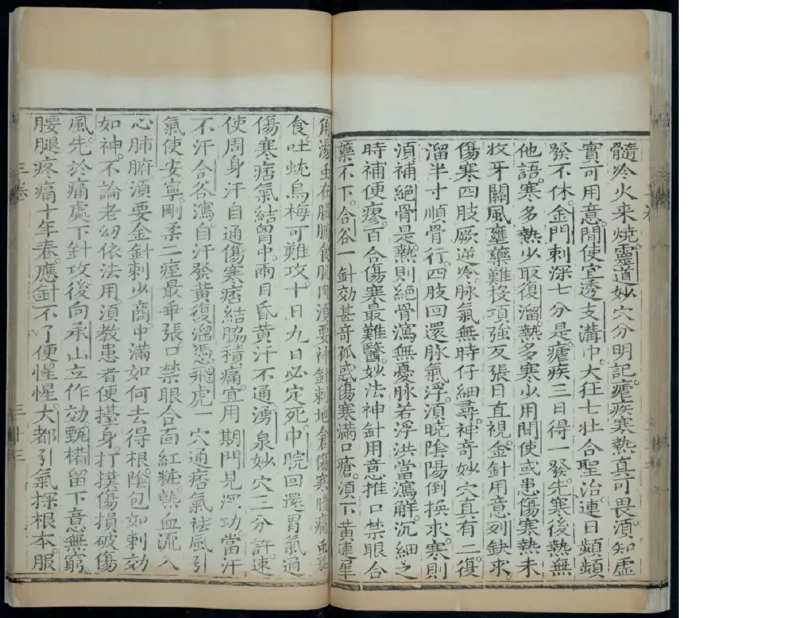 髓冷火来燒靈道妙穴分明記瘧疾寒熱真可畏須知虛
實可用意間使宜透支溝中大狂七壯合聖治連日頻頻
發不休金門刺深七分是瘧疾三日得一發先寒後熱無
他語寒多熱少取復溜熱多寒少用間使或患傷寒熱未
收牙關風壅藥難投項強反張目直視金針用意列缺求
傷寒四肢厥逆冷脉氣無時仔細尋神奇妙穴真有二復
溜半寸順骨行四肢回還脉氣浮須曉陰陽倒換求寒則
須補絕骨是熱則絕骨瀉無憂脉若浮洪當瀉解沉細之
時補便瘳百合傷寒最難醫妙法神針用意推口禁眼合
藥不下合谷一針効甚奇狐惑傷寒滿口瘡須下黄連犀
角湯虫在臟腑食肌肉須要神針刺地倉傷寒腹痛虫
食吐蚘烏梅可難攻十日九日必定死中脘回還胃氣通
傷寒痞氣結胷中兩目昏黄汗不通湧泉妙穴三分許速
使周身汗自通傷寒痞結脇積痛宜用期門見深功當汗
不汗合谷瀉自汗發黄復溜憑飛虎一穴通痞氣祛風引
氣使安寧剛柔二痙最乖張口禁眼合靣紅粧熱血流入
心肺腑須要金針刺少商中滿如何去得根陰包如刺効
如神不論老幼依法用須教患者便擡身打撲傷損破傷
風先於痛處下針攻後向承山立作効甄權留下意無窮
腰腿疼痛十年春應針不了便惺惺大都引氣探根本服
三卷
三十三